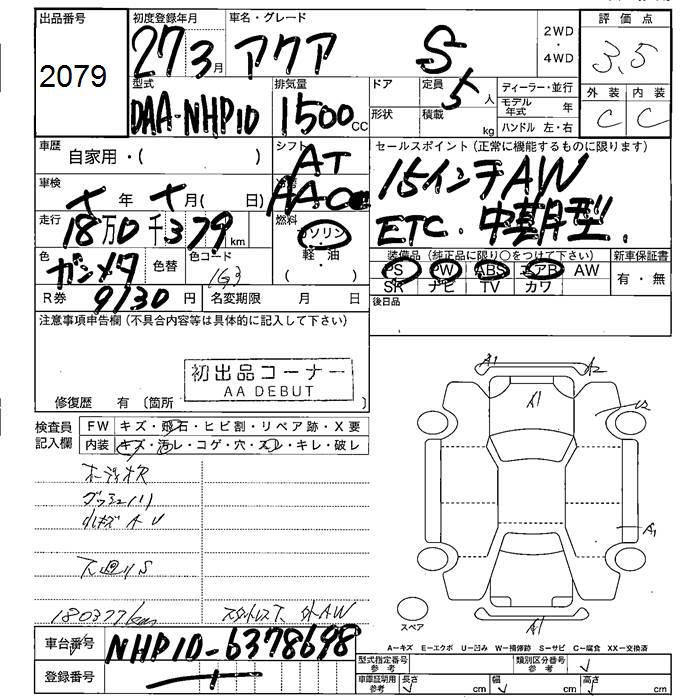 出品番号 初度登録年月 車名・グレード 評価点
2079 27 3月 アクア S 2WD ・ 4WD 3.5
型式 排気量 ドア 定員 5人 ディーラー・並行 外装 内装
DAA-NHP10 1500cc 形状 積載 kg モデル年式 年 C C
ハンドル 左・右
車歴 自家用・( ) シフト AT セールスポイント(正常に機能するものに限ります)
車検 年 月( 日) AAC 15インチAW
走行 18万0千379km 燃料 ガソリン ETC. 中期型.
軽・油
色 ガンメタ 色替 色コード 1G3 装備品(純正品に限り○をつけて下さい) 新車保証書
PS PW ABS エアB AW 有・無
SR ナビ TV カワ
R券 9130円 名変期限 月 日 後日品
注意事項申告欄(不具合内容等は具体的に記入して下さい)
初出品コーナー
AA DEBUT
修復歴 有〔箇所 〕
A1 A2
A1
U2
検査員 FW キズ・飛石・ヒビ割・リペア跡・X要
記入欄 内装 キズ・汚レ・コゲ・穴・スレ・キレ・破レ
オーディオR
A1
下廻りS
180377km スタッドレスT 外AW
スペア
A1
車台番号 NHP10-6378698 A=キズ E=エクボ U=凹み W=補修跡 S=サビ C=腐食 XX=交換済
登録番号 型式指定番号 参考 類別区分番号 参考
車庫証明用 参考 長さ cm 幅 cm 高さ cm